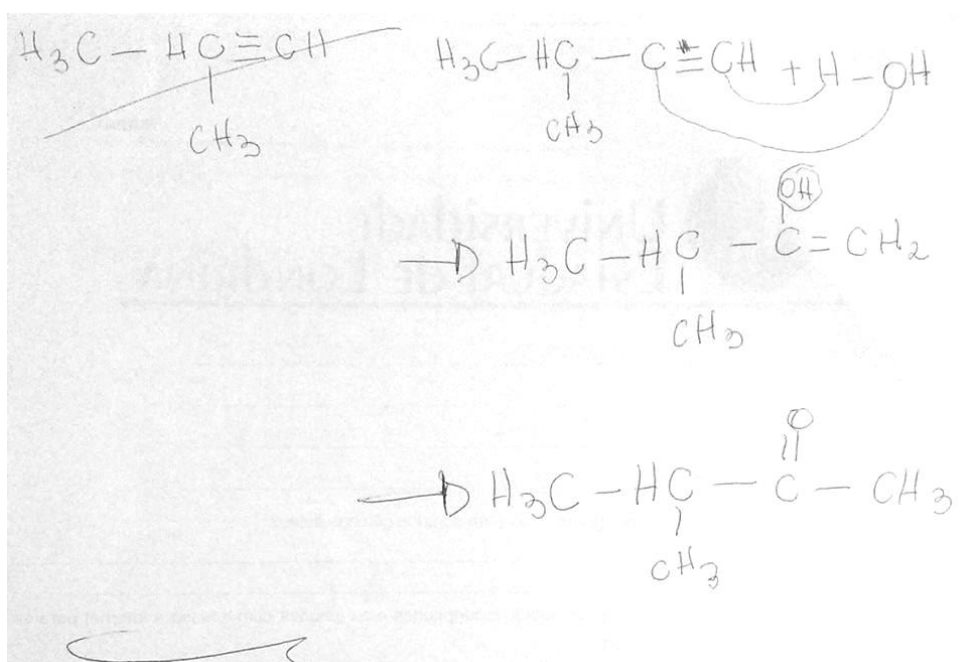 H3C – HC ≡ CH
|
CH3
H3C – HC – C ≡ CH + H – OH
|
CH3
OH
|
→ H3C – HC – C = CH2
|
CH3
O
||
→ H3C – HC – C – CH3
|
CH3